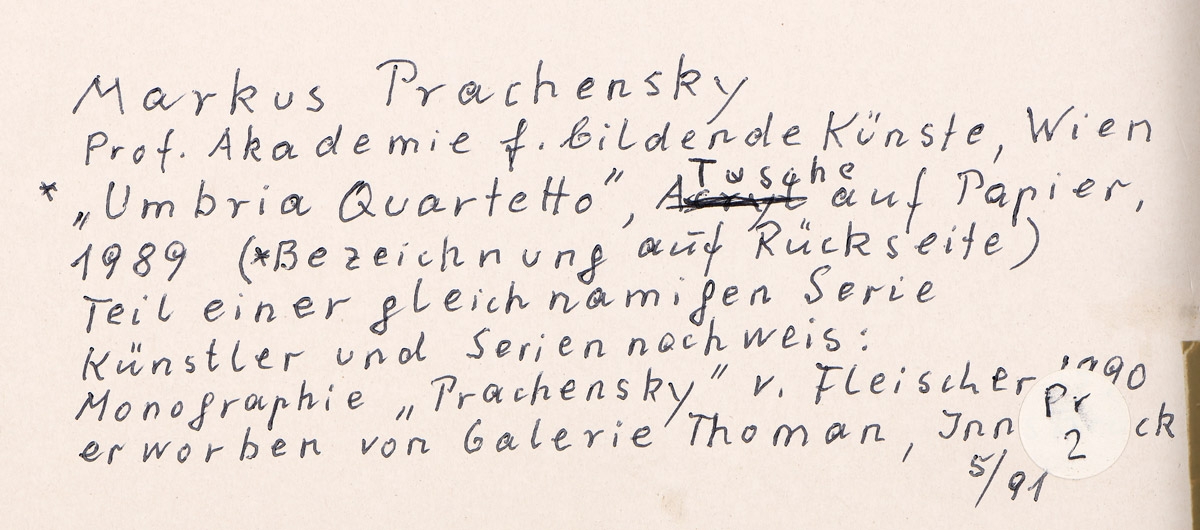 Markus Prachensky
Prof. Akademie f. bildende Künste, Wien
* „Umbria Quartetto", Tusche auf Papier,
1989 (*Bezeichnung auf Rückseite)
Teil einer gleichnamigen Serie
Künstler und Seriennachweis:
Monographie „Prachensky" v. Fleischer 1990
erworben von Galerie Thoman, Inn ck
5/91
Pr
2